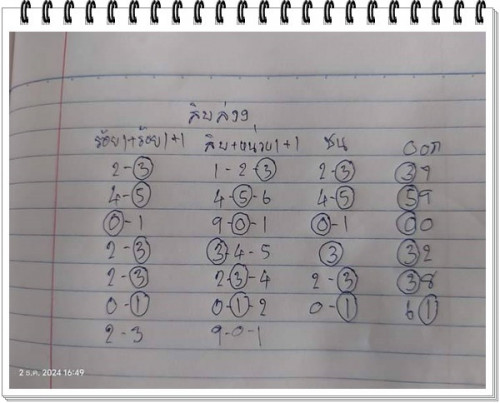 สิบล่าง
ร้อย1+ร้อย1+1 สิบ+หน่วย1+1 ชน ออก
2-3 1-2-3 2-3 39
4-5 4-5-6 4-5 59
0-1 9-0-1 0-1 00
2-3 3-4-5 3 32
2-3 2-3-4 2-3 38
0-1 0-1-2 0-1 61
2-3 9-0-1
2 ธ.ค. 2024 16:49